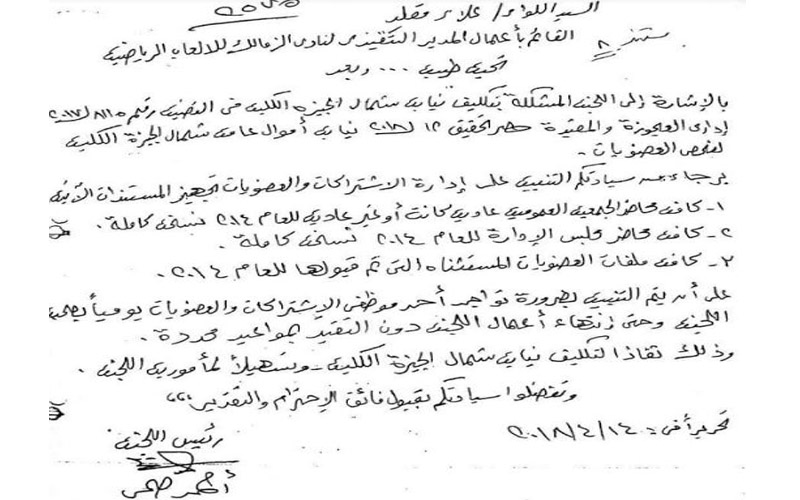 السيد اللواء / علاء مقلد
القائم بأعمال المدير التنفيذى لنادى الزمالك للألعاب الرياضية
تحية طيبة ... وبعد
بالإشارة إلى اللجنة المشكلة بتكليف نيابة شمال الجيزة الكلية فى القضية رقم ٨١١٥ / ٢٠١٧
إدارى العجوزة والمقيدة حصر تحقيق ١٢ / ٢٠١٨ نيابة أموال عامة شمال الجيزة الكلية
لفحص العضويات .
برجاء من سيادتكم التنبيه على إدارة الاشتراكات والعضويات تجهيز المستندات الآتية
١- كافة محاضر الجمعية العمومية عادية كانت أو غير عادية للعام ٢٠١٤ نسخة كاملة .
٢- كافة محاضر مجلس الإدارة للعام ٢٠١٤ نسخة كاملة .
٣- كافة ملفات العضويات المستثناه التى تم قبولها للعام ٢٠١٤ .
على أن يتم التنبيه بضرورة تواجد أحد موظفى الاشتراكات والعضويات يومياً بصحبة
اللجنة وحتى إنتهاء أعمال اللجنة دون التقيد بمواعيد محددة .
وذلك نفاذا لتكليف نيابة شمال الجيزة الكلية . وتسهيلاً لمأمورية اللجنة .
وتفضلوا سيادتكم بقبول فائق الإحترام والتقدير ،،،
تحريراً فى : ١٤ / ٤ / ٢٠١٨
رئيس اللجنة